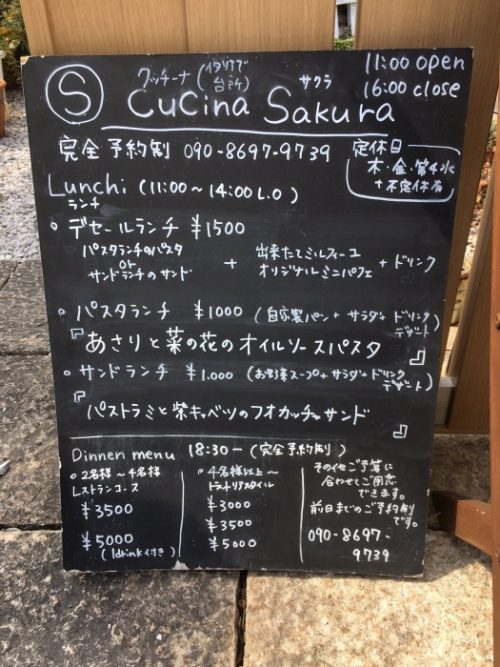 11:00 open
16:00 close
S
クッチーナ
(イタリアで
台所)
サクラ
Cucina Sakura
完全予約制 090-8697-9739
定休日
木・金・第4水
+不定休有
Lunchi (11:00～14:00 L.O)
ランチ
デセールランチ ¥1500
パスタランチのパスタ
or
サンドランチのサンド
+
出来たてミルフィーユ
オリジナルミニパフェ
+ドリンク
パスタランチ ¥1000 (自家製パン+サラダ+ドリンク
デザート
『あさりと菜の花のオイルソースパスタ』
サンドランチ ¥1,000 (お野菜スープ+サラダ+ドリンク
デザート)
『パストラミと紫キャベツのフォカッチャサンド』
Dinnen menu 18:30- (完全予約制)
2名様～4名様
レストランコース
¥3500
¥5000
(1drink付き)
4名様以上～
トラットリアスタイル
¥3000
¥3500
¥5000
その他ご予算に
合わせてご用意
できます。
前日までのご予約制
です。
090-8697-
9739